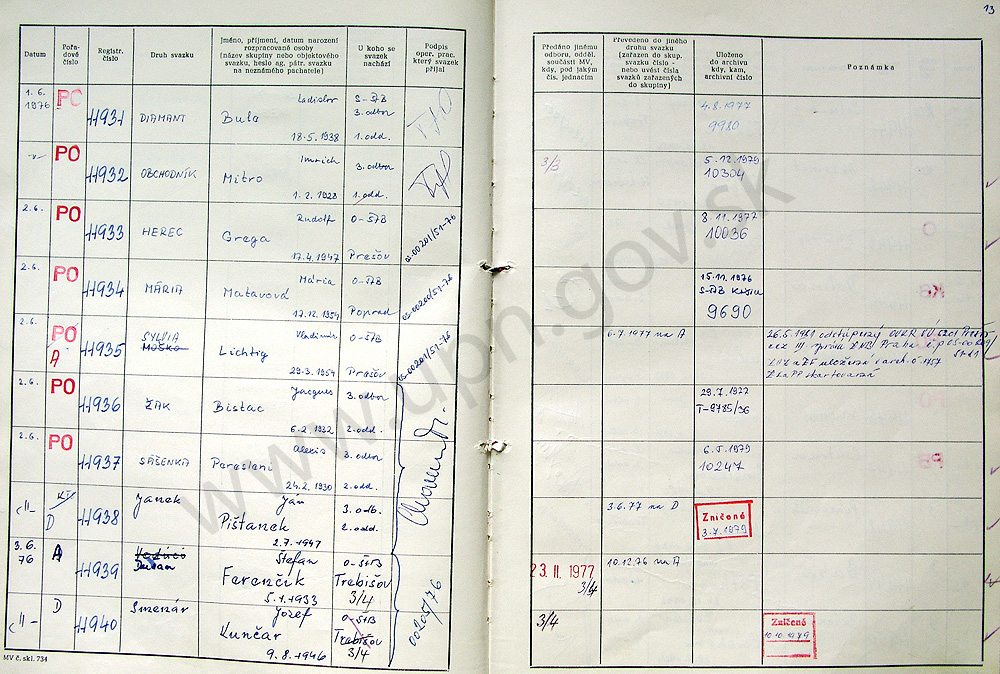 13
Datum
Pořadové číslo
Registr. číslo
Druh svazku
Jméno, příjmení, datum narození rozpracované osoby (název skupiny nebo objektového svazku, heslo ag. pátr. svazku na neznámého pachatele)
U koho se svazek nachází
Podpis oper. prac. který svazek přijal
Předáno jinému odboru, odděl. součásti MV, kdy, pod jakým čís. jednacím
Převedeno do jiného druhu svazku (zařazen do skup. svazku číslo - nebo uvést čísla svazků zařazených do skupiny)
Uloženo do archivu kdy, kam, archivní číslo
Poznámka
1. 6. 1976
PO
11931
DIAMANT
Ladislav
Bula
18. 5. 1938
S-ŠTB
3. odbor
1. odd.
4. 8. 1977
9980
PO
11932
OBCHODNÍK
Imrich
Mitro
1. 2. 1928
3. odbor
1. odd.
3/3
5. 12. 1979
10304
2.6.
PO
11933
HEREC
Rudolf
Grega
17. 4. 1947
O-ŠTB
Prešov
os-00201/51-76
8. 11. 1977
10036
2.6.
PO
11934
MÁRIA
Mária
Matavová
17. 12. 1954
O-ŠTB
Poprad
os-00200/51-76
15. 11. 1976
9690
2.6.
PO
A
11935
SYLVIA
Vladimír
Lichtig
29. 3. 1954
O-ŠTB
Prešov
os-00201/51-76
6. 7. 1977 na A
2.6.
PO
11936
ŽAK
Jacques
Bistac
6. 2. 1932
3. odbor
2. odd.
29. 7. 1977
T-9785/36
2.6.
PO
11937
SÁŠENKA
Alexis
24. 2. 1930
3. odbor
2. odd.
10247
-11-
D
11938
Janek
Ján
Pištanek
2. 7. 1947
3. odb.
2. odd.
3. 6. 77 na D
Zničené
3. 7. 1979
3. 6. 76
A
11939
Štefan
Ferenčík
5. 1. 1933
O-ŠTB
Trebišov
3/4
23. II. 1977
3/4
10. 12. 76 na A
-11-
D
11940
Smenár
Jozef
Kunčar
9. 8. 1946
O-ŠTB
Trebišov
3/4
00205/76
3/4
Zničené
10. 10. 1979
MV č. skl. 734
www.upn.gov.sk